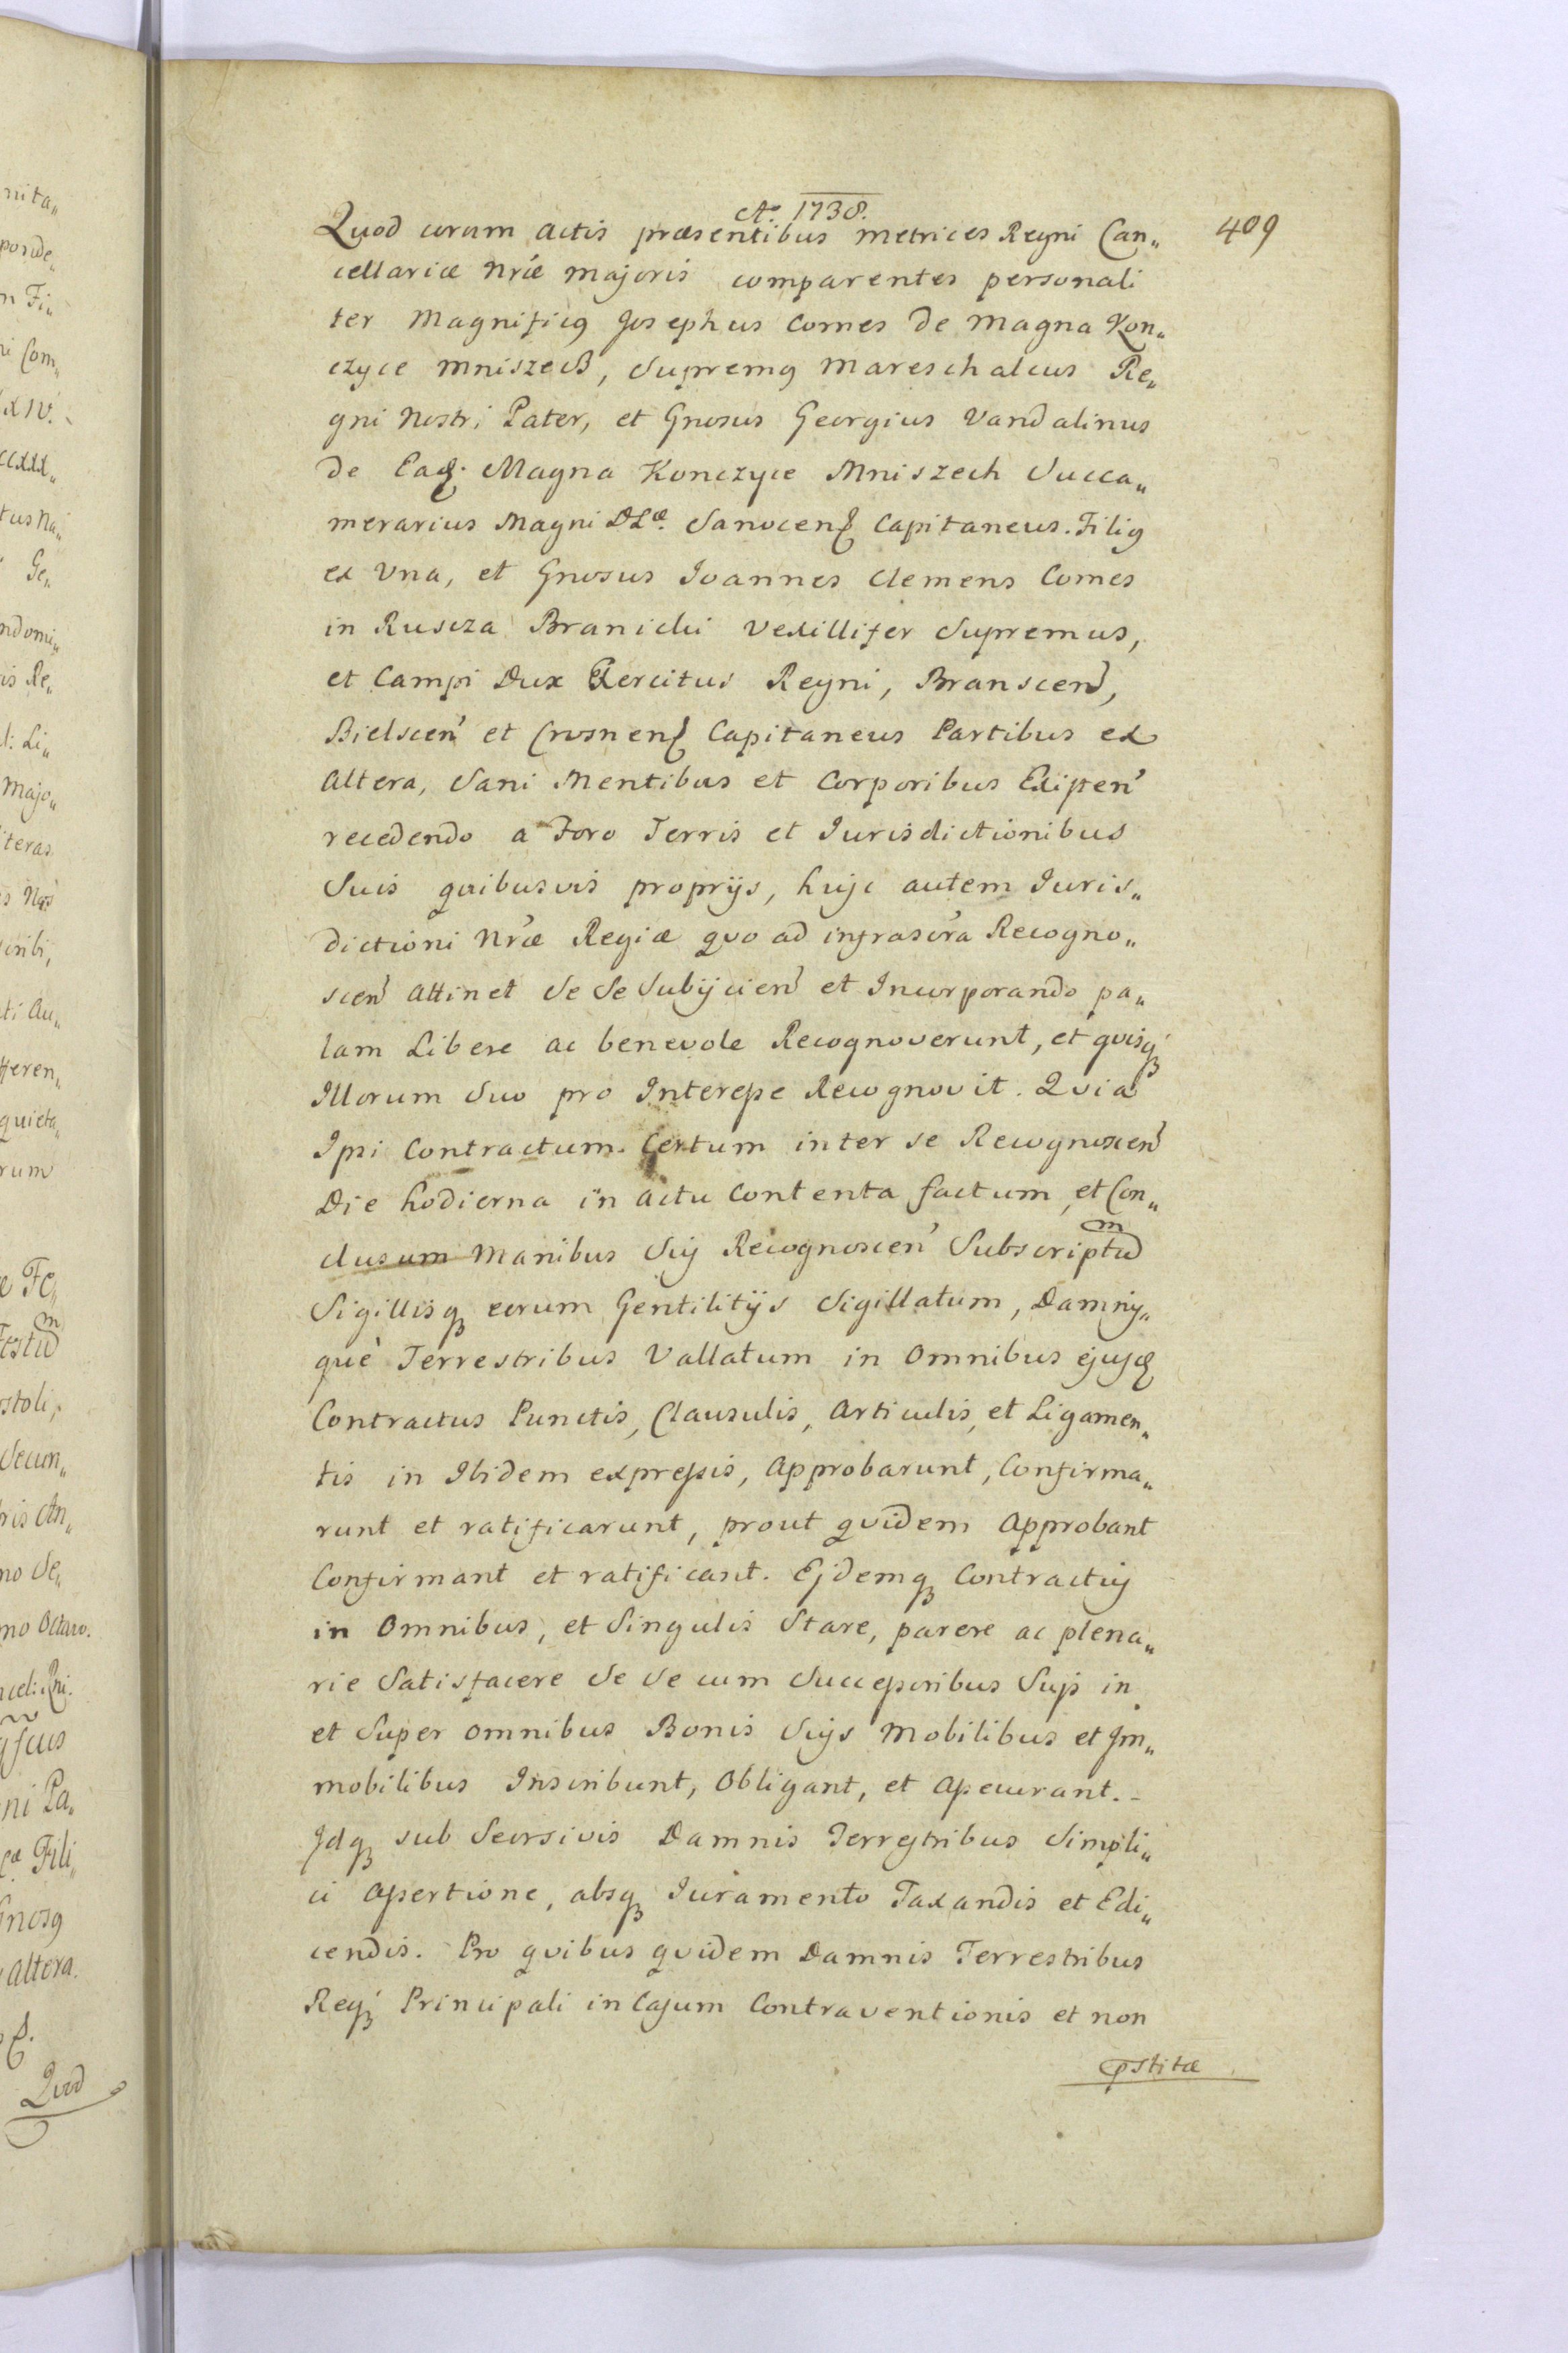 A. 1738.
409
Quod coram actis præsentibus metrices Regni Can„
cellariæ nræ majoris comparentes personali
ter Magnificus Josephus Comes de Magna Kon„
czyce Mniszech, Supremus Mareschalcus Re„
gni Nostri Pater, et Gnosus Georgius Vandalinus
de Eadq. Magna Konczyce Mniszech Succa„
merarius Magni D. L. Sanocen Capitaneus. Filius
ex Una, et Gnosus Joannes Clemens Comes
in Ruscza Branicki Vexillifer Supremus,
et Campi Dux Exercitus Regni, Branscen,
Bielscen et Crosnen Capitaneus Partibus ex
altera, Sani Mentibus et Corporibus Existen
recedendo a Foro Terris et Jurisdictionibus
Suis quibusvis proprijs, huic autem Juris„
dictioni nræ Regiæ quo ad infrascra Recogno„
scen attinet Se Se Subijcien et Incorporando pa„
lam Libere ac benevole Recognoverunt, et quisq
Illorum Suo pro Interesse Recognovit. Quia
Ipsi Contractum Certum inter se Recognoscen
Die hodierna in actu Contenta factum, et Con„
clusum Manibus Suis Recognoscen Subscriptum
Sigillisq eorum Gentilitijs Sigillatum, Damnis„
què Terrestribus Vallatum in Omnibus ejusd
Contractus Punctis, Clausulis, Articulis, et Ligamen„
tis in Ibidem expressis, Approbarunt, Confirma„
runt et ratificarunt, prout quidem Approbant
Confirmant et ratificant. Ejdemq Contractus
in Omnibus, et Singulis Stare, parere ac plena„
rie Satisfacere Se Se cum Successoribus Suis in
et Super omnibus Bonis Suis Mobilibus et Im„
mobilibus Inscribunt, Obligant, et assecurant. -
Idq sub Seorsivis Damnis Terrestribus Simpli„
ci assertione, absq Juramento Taxandis et Edi„
cendis. Pro quibus quidem Damnis Terrestribus
Req Principali in Casum Contraventionis et non
pstitæ
nita„
ponde„
n Fi„
ni Com„
tus Na„
Ge„
ndomi„
is Re„
Li„
Majo„
iteras
cribi,
ti Au„
fferen„
quieta„
rum
e Fe„
stoli,
Secun„
ris An„
no Se„
mo Octavo.
ni Pa„
Fili„
Altera.
Quod